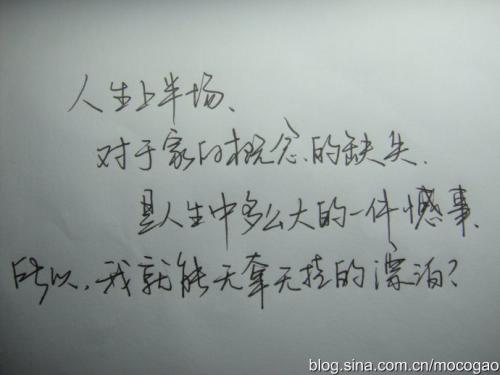 人生上半场、
对于家的概念、的缺失、
是人生中多么大的一件憾事、
所以，我就能无牵无挂的漂泊？
blog.sina.com.cn/mocogao